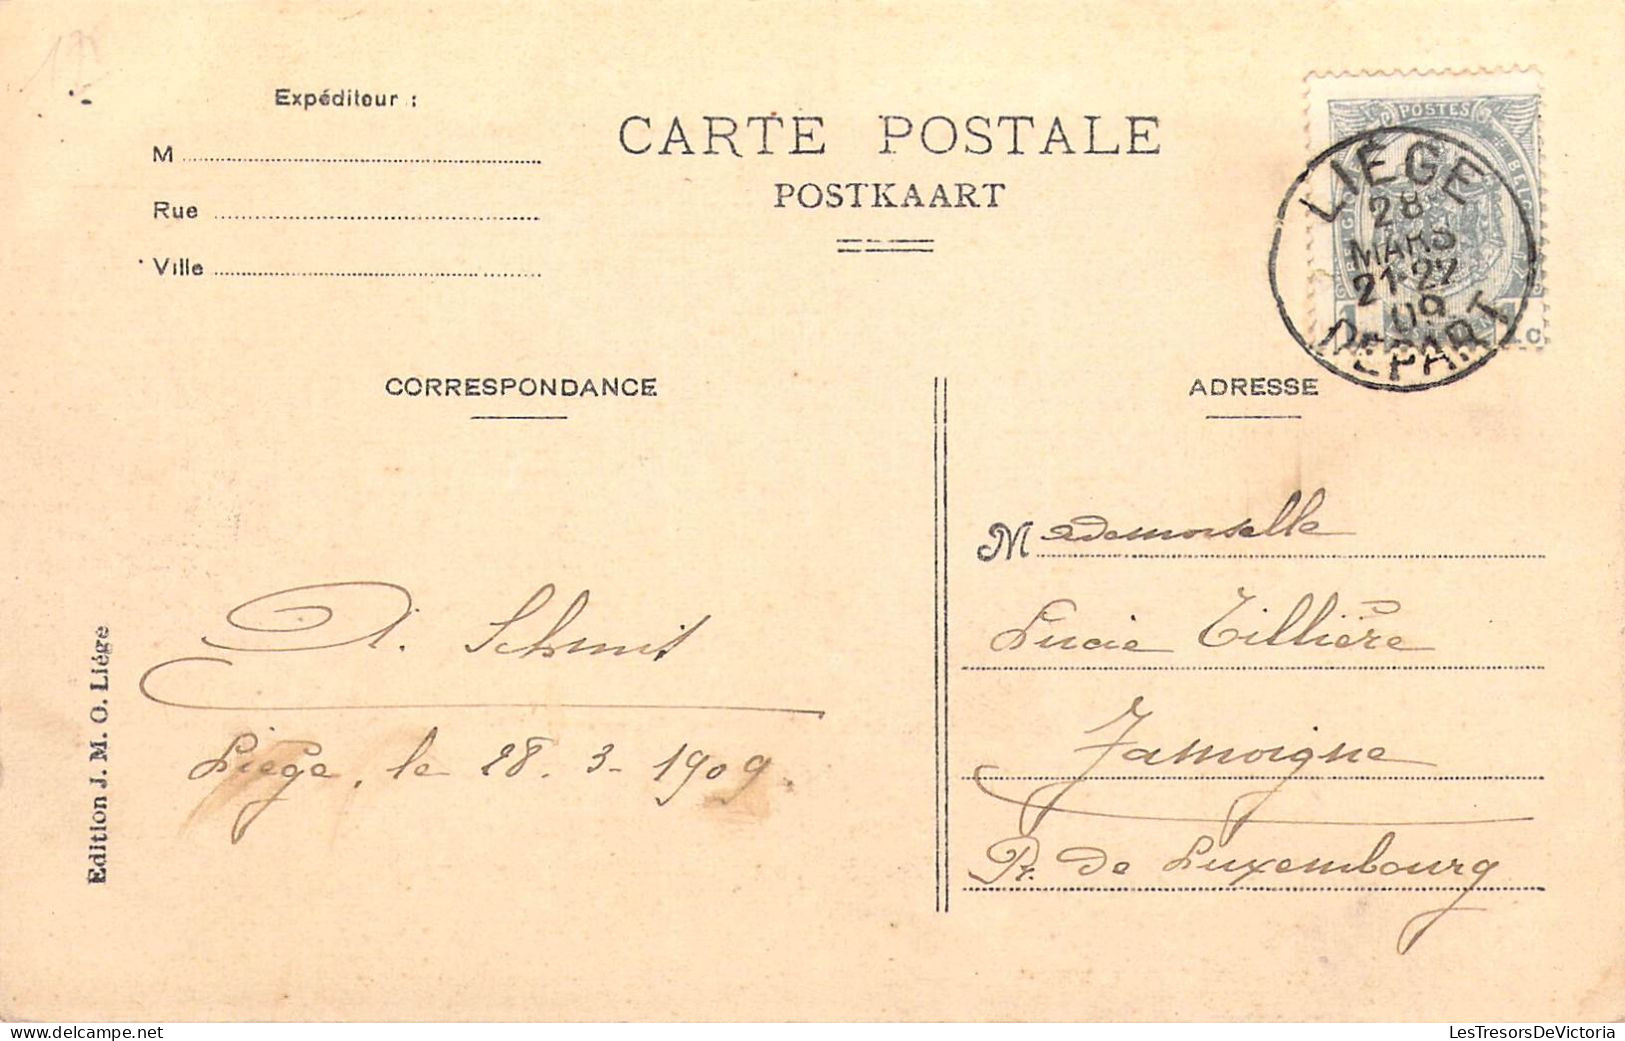 Expéditeur :
M
Rue
Ville
CARTE POSTALE
POSTKAART
POSTES
LIÉGE
28
MARS
21-22
09
DEPART
CORRESPONDANCE
ADRESSE
A. Schmit
Liège, le 28. 3- 1909.
Mademoiselle
Lucie Tillière
Jamoigne
Pr. de Luxembourg
Edition J. M. O. Liége
LesTresorsDeVictoria